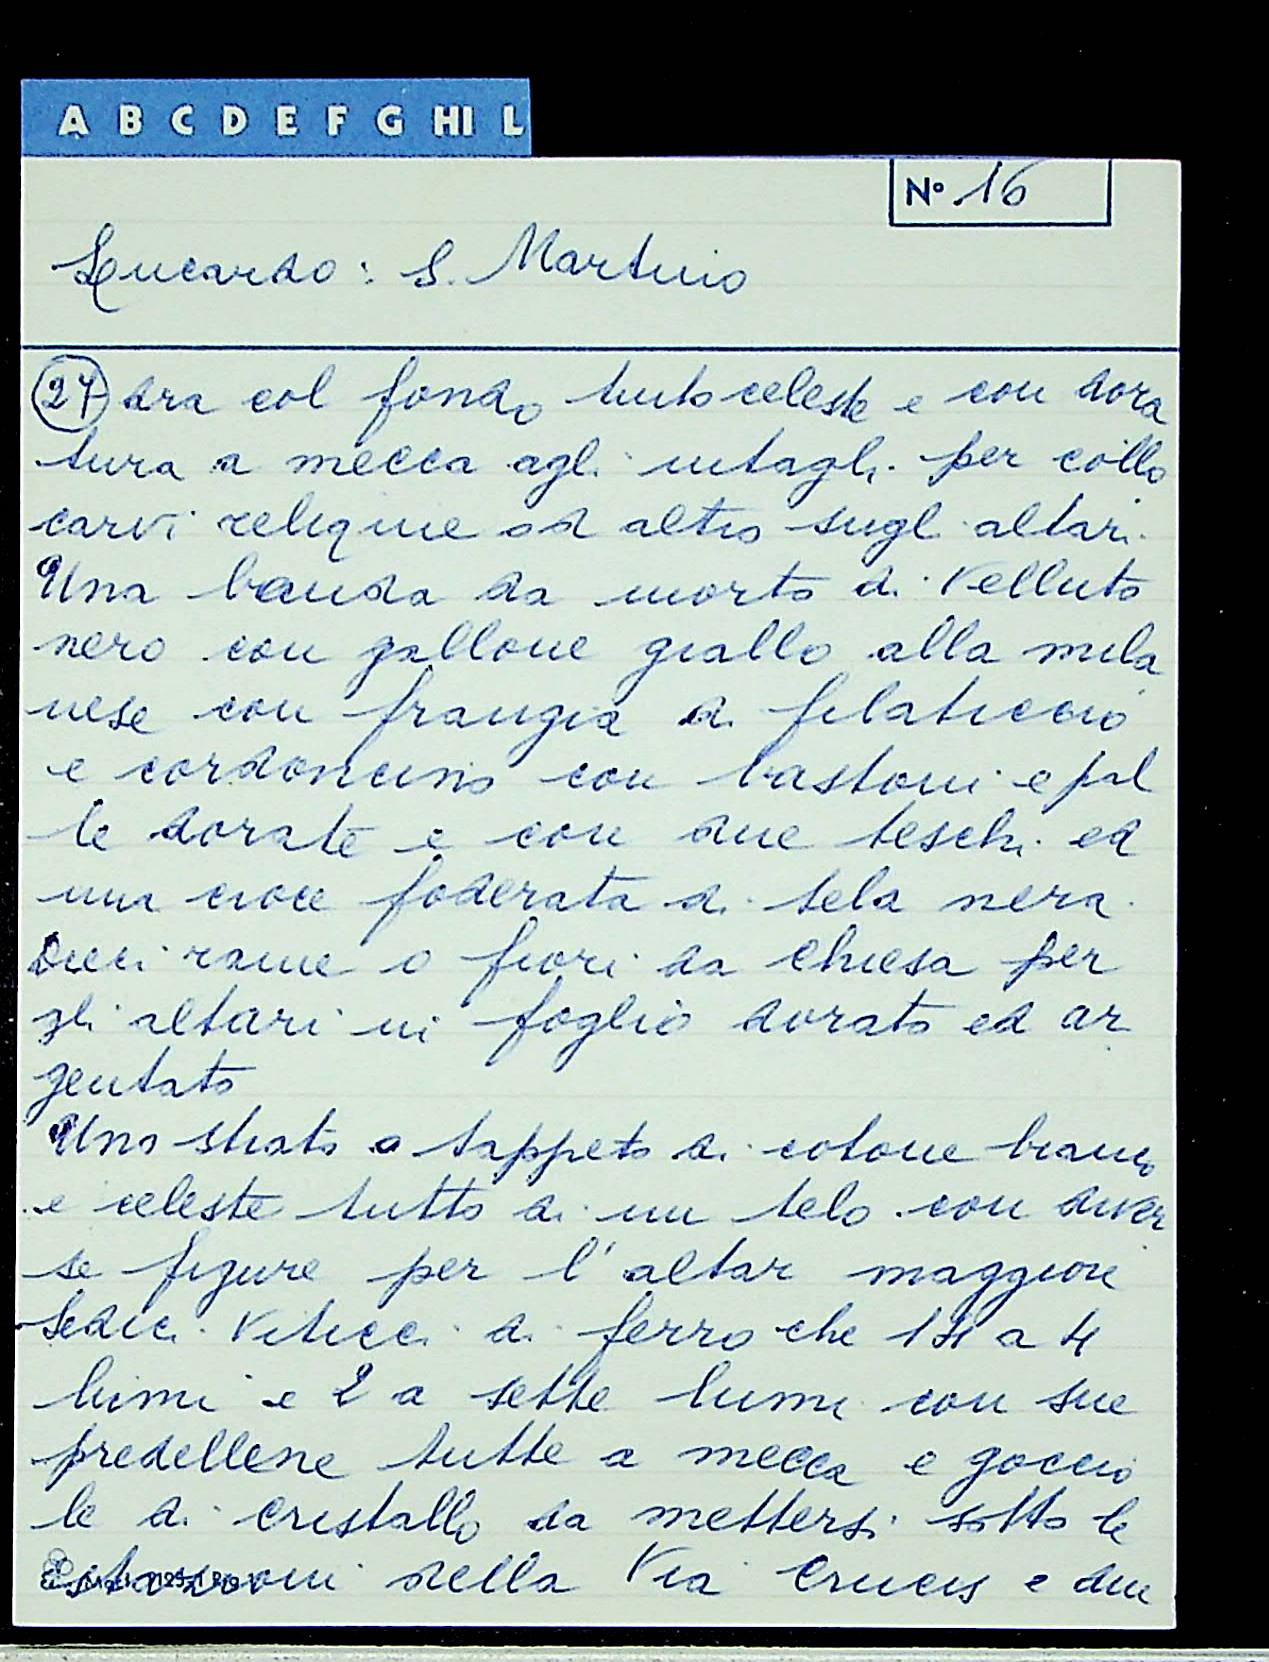 A B C D E F G HI L
N° 16
Lucardo: S. Martino
27 dra col fondo tinto celeste e con dora
tura a mecca agli intagli per collo
carvi reliquie od altro sugli altari.
Una banda da morto di velluto
nero con gallone giallo alla mila
nese con frangia di filaticcio
e cordoncino con bastoni e pal
le dorate e con due teschi ed
una croce foderata di tela nera.
Dieci rame o fiori da chiesa per
gli altari in foglio dorato ed ar
gentato
Uno strato o tappeto di cotone bianco
e celeste tutto di un telo con diver
se figure per l'altar maggiore
Sedici viticci di ferro che 14 a 4
lumi e 2 a sette lumi con sue
predelline tutte a mecca e goccio
le di cristallo da mettersi sotto le
stazioni della Via Crucis e due